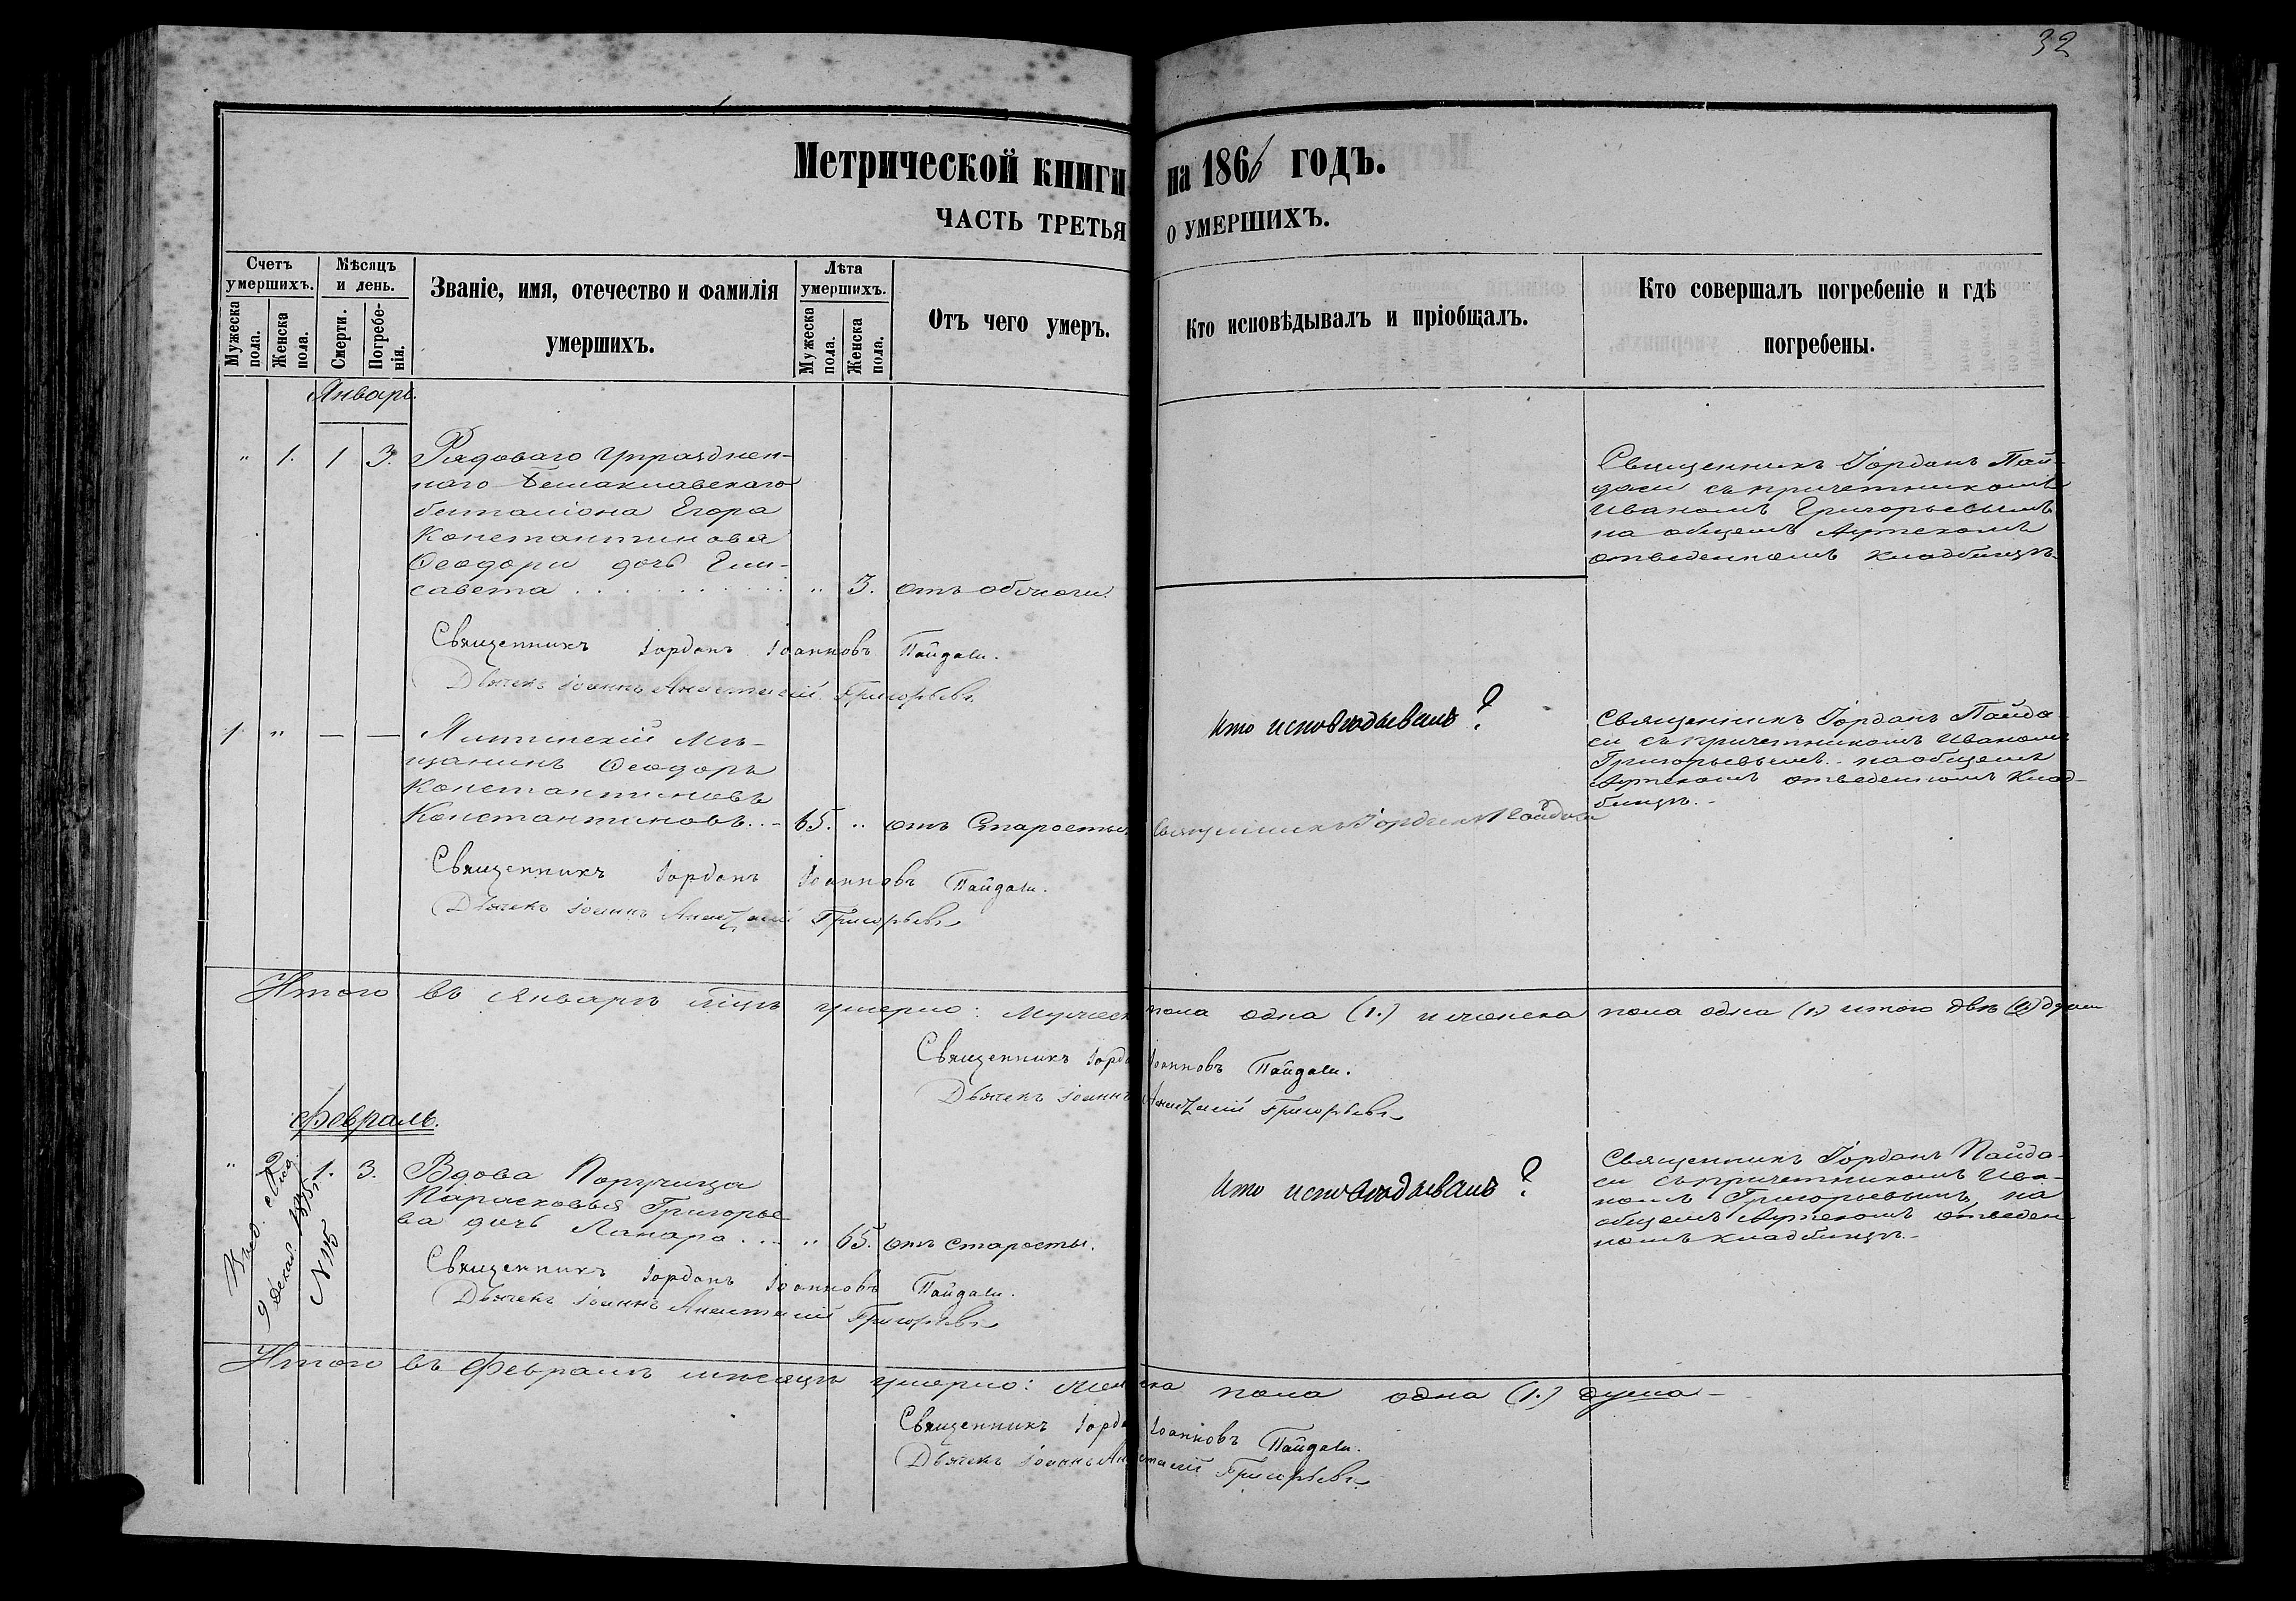 32
Метрической книги на 1866 годъ.
ЧАСТЬ ТРЕТЬЯ о УМЕРШИХЪ.
Счетъ умершихъ.
Мужеска пола.
Женска пола.
Мѣсяцъ и день.
Смерти.
Погребенія.
Званіе, имя, отечество и фамилія
умершихъ.
Лѣта умершихъ.
Мужеска пола.
Женска пола.
Отъ чего умеръ.
Кто исповѣдывалъ и пріобщалъ.
Кто совершалъ погребеніе и гдѣ
погребены.
Январь.
" 1. 1 3. Рядоваго Упразднен-
наго Балаклавскаго
баталіона Егора
Константинова
Ѳеодори дочь Ели-
савета " 3. отъ
Священникъ Іорданъ Пай-
даси съ причетникомъ
Иваномъ Григорьевымъ
на общемъ Аутскомъ
отведенномъ кладбищѣ.
Священникъ Іорданъ Іоанновъ Пайдаси.
Дьячекъ Іоаннъ Анастасій Григорьевъ
1 " — — Ялтинскій Мѣ-
щанинъ Ѳеодоръ
Константиновъ
Константиновъ. - 65. " отъ Старости
Кто исповѣдывалъ?
Священникъ Іорданъ Пайдаси
Священникъ Іорданъ Пайда-
си съ причетникомъ Иваномъ
Григорьевымъ на общемъ
Аутскомъ отведенномъ Клад-
бищѣ. -
Священникъ Іорданъ Іоанновъ Пайдаси.
Дьячекъ Іоаннъ Анастасій Григорьевъ
Итого въ Январѣ мцѣ умерло: Мужеска пола одна (1.) и женска пола одна (1) итого двѣ (2) души
Священникъ Іорданъ Іоанновъ Пайдаси.
Дьячекъ Іоаннъ Анастасій Григорьевъ
Февраль.
" 2 1. 3. Вдова Поручица
Парасковья Григорье-
ва дочь Лапара " 65. отъ старости.
9 Декаб.
N 115
Кто исповѣдывалъ?
Священникъ Іорданъ Пайда-
си съ причетникомъ Ива-
номъ Григорьевымъ, на
общемъ Аутскомъ отведен-
номъ кладбищѣ. -
Священникъ Іорданъ Іоанновъ Пайдаси.
Дьячекъ Іоаннъ Анастасій Григорьевъ
Итого въ Февралѣ мѣсяцѣ умерло: Женска пола одна (1.) душа -
Священникъ Іорданъ Іоанновъ Пайдаси.
Дьячекъ Іоаннъ Анастасій Григорьевъ